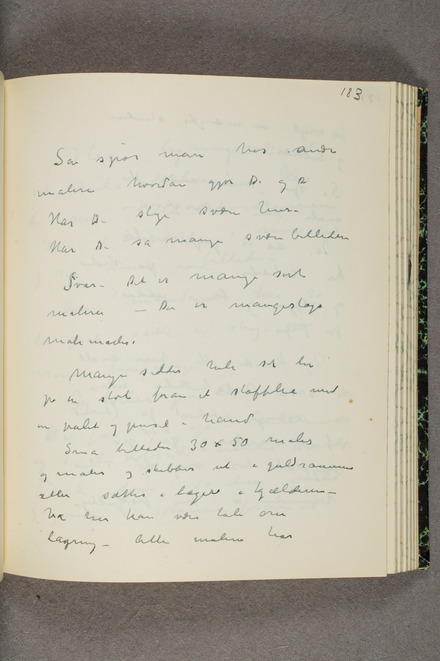 183
Så spør man hos andre
malere hvordan gjør De og De
Har De slige svære hus.
Har De så mange svære billeder
Svar. Det er mange sort
malere — Der er mangeslags
malemåder.
Mange sidder hele sit liv
på en stol foran et staffeli med
en palet og pensel i hånd
Små billeder 30 x 50 males
og males og skikkes ud i guldrammer
eller sættes i lager i kjælderen—
her kan være tale om
lagring — Alle malere har